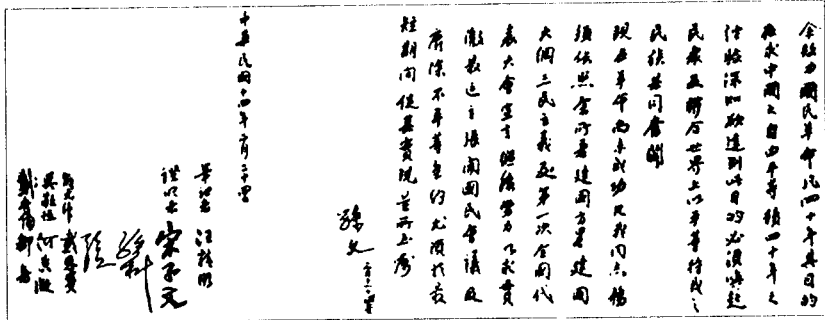 余致力國民革命凡四十年其目的
在求中國之自由平等積四十年之
經驗深知欲達到此目的必須喚起
民衆及聯合世界上以平等待我之
民族共同奮鬥
現在革命尚未成功凡我同志務
須依照余所著建國方略建國
大綱三民主義及第一次全國代
表大會宣言繼續努力以求貫
澈最近主張開國民會議及
廢除不平等條約尤須於最
短期間促其實現是所至囑
孫文
中華民國十四年二月二十四日
筆記者 汪精衛
證明者 宋子文
孫科
邵元冲 戴恩賽
吳敬恆 何香凝
戴季陶 鄒魯